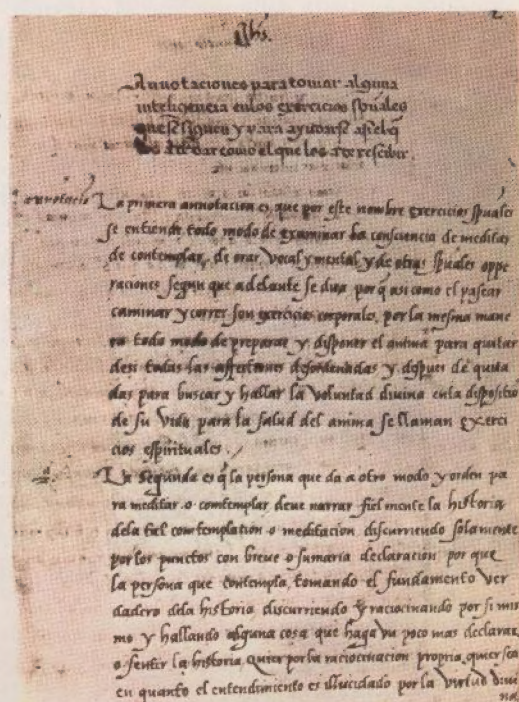 Jhs.
Annotaciones para tomar alguna
inteligencia enlos exercicios spũales
que se siguen y para ayudarse asi el q̃
los a de dar como el que los a de rescibir.
annotaciõ La primera annotacion es que por este nombre exercicios spũales
se entiende todo modo de examinar la consciencia de meditar
de contemplar, de orar, vocal y mental, y de otras spũales oppe
raciones segun que adelante se dira porq̃ asi como el pasear
caminar y correr son exercicios corporales, por la mesma mane
ra todo modo de preparar y disponer el anima para quitar
desi todas las affectiones desordenadas y despues de quita
das para buscar y hallar la voluntad divina enla dispositiõ
de su vida para la salud del anima se llaman exerci
cios espirituales.
La segunda es q̃ la persona que da a otro modo y orden pa
ra meditar o comtemplar deve narrar fielmente la historia
dela tal comtemplation o meditacion discurriendo solamente
por los punctos con breve o sumaria declaracion por que
la persona que contempla, tomando el fundamento ver
dadero dela historia discurriendo y raciocinando por si mis
mo y hallando alguna cosa que haga un poco mas declarar
o sentir la historia, quier por la raciocinacion propria, quier sea
en quanto el entendimiento es illucidado por la virtud divi
na,